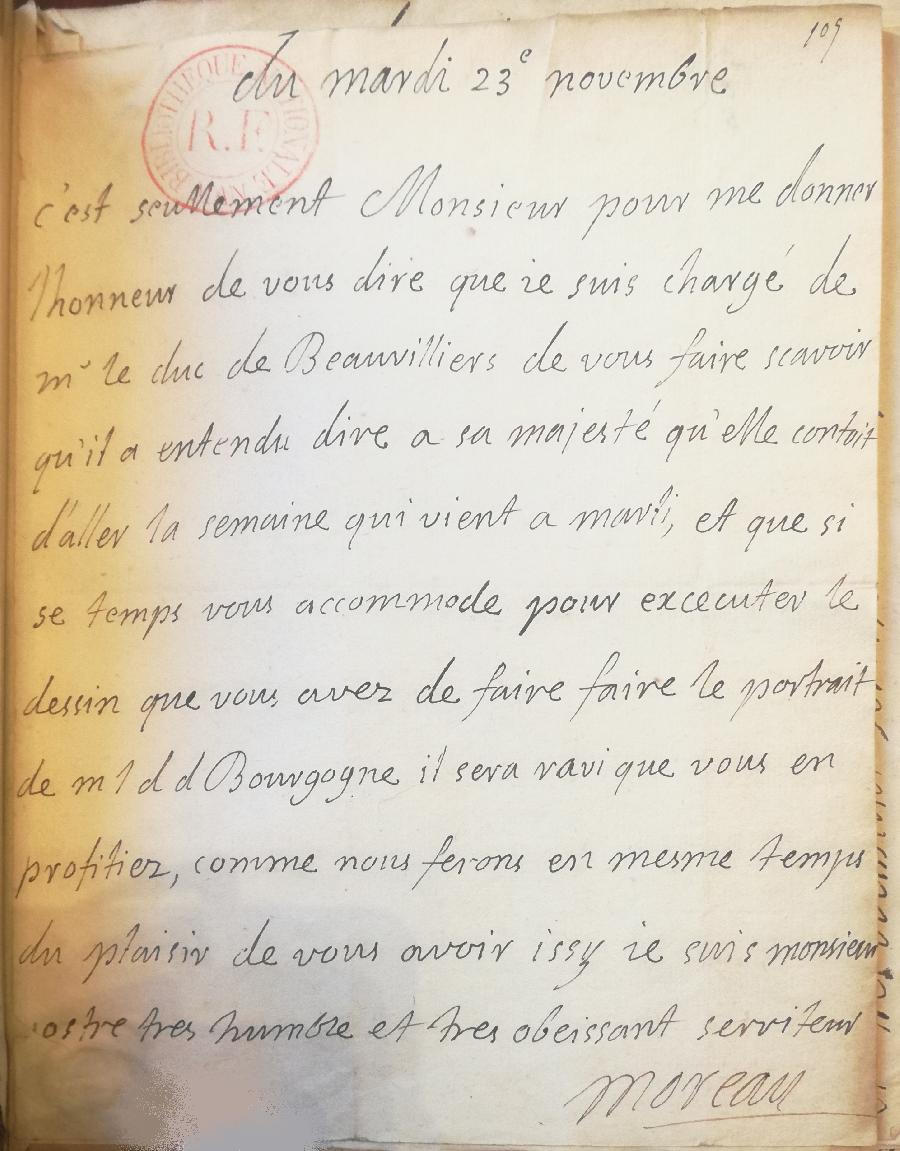 105
du mardi 23e novembre
BIBLIOTHEQUE NATIONALE
R.F
c'est seullement Monsieur pour me donner
l'honneur de vous dire que ie suis chargé de
mr le duc de Beauvilliers de vous faire scavoir
qu'il a entendu dire a sa majesté qu'elle contoit
d'aller la semaine qui vient a marli, et que si
se temps vous accommode pour excecuter le
dessin que vous avez de faire faire le portrait
de m l d d Bourgogne il sera ravi que vous en
profitiez, comme nous ferons en mesme temps
du plaisir de vous avoir issy ie suis monsieur
vostre tres humble et tres obeissant serviteur
moreau